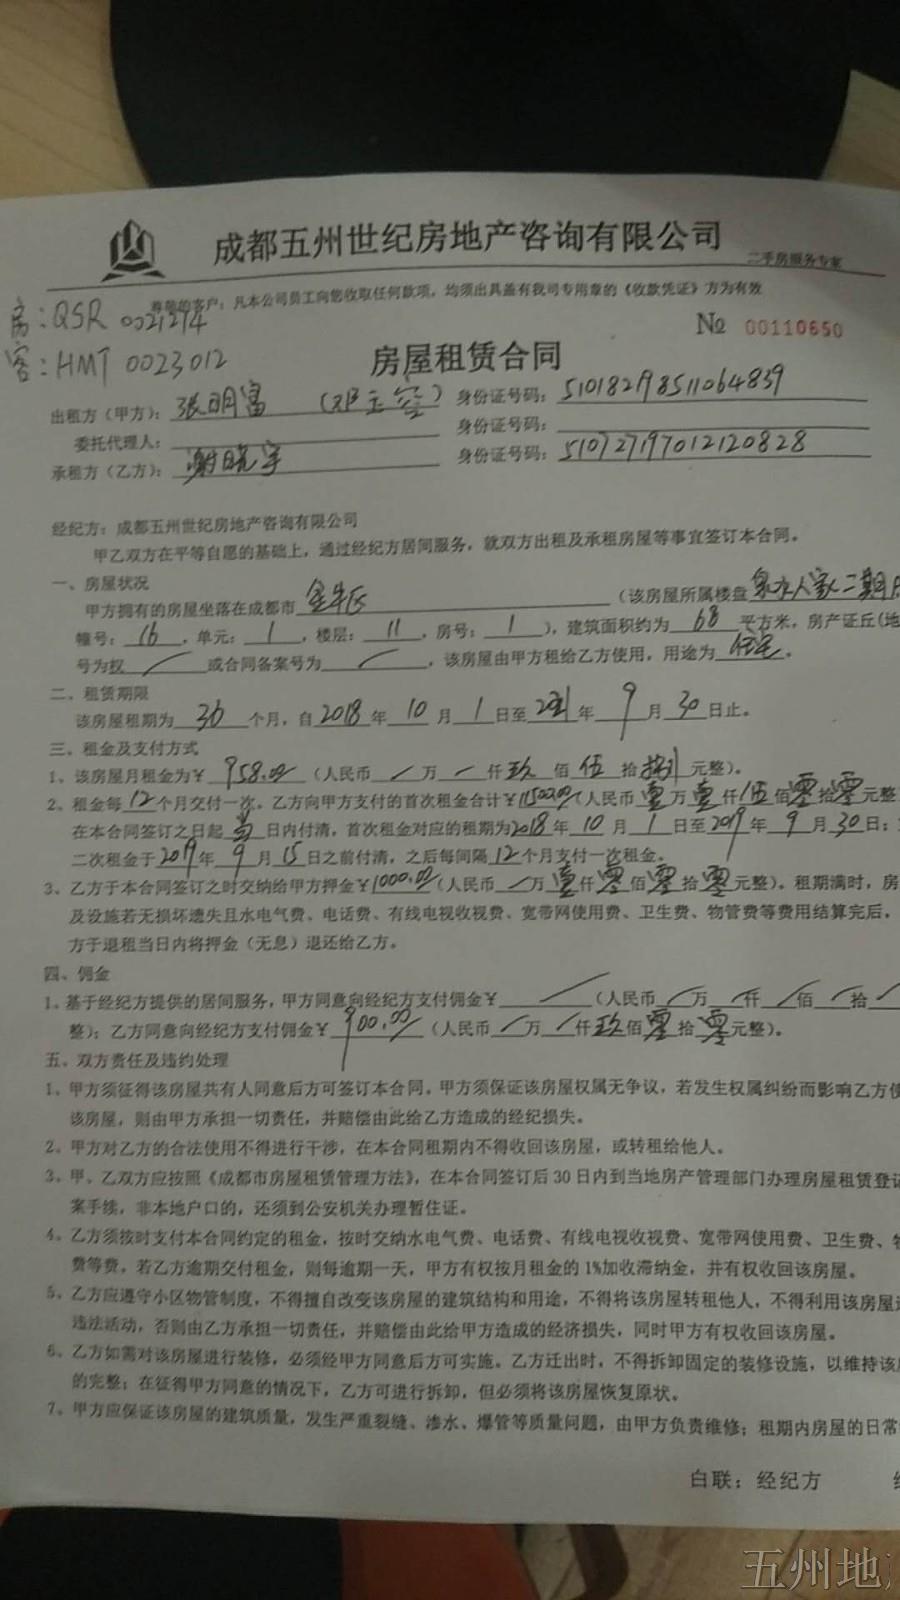 成都五州世纪房地产咨询有限公司
二手房服务专家
尊敬的客户：凡本公司员工向您收取任何款项，均须出具盖有我司专用章的《收款凭证》方为有效
房：QSR 0021274
№ 00110650
客：HMT 0023012
房屋租赁合同
出租方（甲方）：张明富 身份证号码：510182198511064839
委托代理人： 身份证号码：
承租方（乙方）：谢晓宇 身份证号码：510727197012120828
经纪方：成都五州世纪房地产咨询有限公司
甲乙双方在平等自愿的基础上，通过经纪方居间服务，就双方出租及承租房屋等事宜签订本合同。
一、房屋状况
甲方拥有的房屋坐落在成都市金牛区（该房屋所属楼盘 人家二期
幢号：16，单元：1，楼层：11，房号：1），建筑面积约为68平方米，房产证丘(地
号为权／或合同备案号为／，该房屋由甲方租给乙方使用，用途为住宅。
二、租赁期限
该房屋租期为36个月，自2018年10月1日至2021年9月30日止。
三、租金及支付方式
1、该房屋月租金为¥958.00（人民币／万／仟玖佰伍拾捌元整）。
2、租金每12个月交付一次。乙方向甲方支付的首次租金合计¥11500.00（人民币壹万壹仟伍佰零拾零元整
在本合同签订之日起当日内付清，首次租金对应的租期为2018年10月1日至2019年9月30日；
二次租金于2019年9月15日之前付清，之后每间隔12个月支付一次租金。
3、乙方于本合同签订之时交纳给甲方押金¥1000.00（人民币／万壹仟零佰零拾零元整）。租期满时，房
及设施若无损坏遗失且水电气费、电话费、有线电视收视费、宽带网使用费、卫生费、物管费等费用结算完后，
方于退租当日内将押金（无息）退还给乙方。
四、佣金
1、基于经纪方提供的居间服务，甲方同意向经纪方支付佣金¥／（人民币／万／仟／佰／拾／
整）；乙方同意向经纪方支付佣金¥900.00（人民币／万／仟玖佰零拾零元整）。
五、双方责任及违约处理
1、甲方须征得该房屋共有人同意后方可签订本合同。甲方须保证该房屋权属无争议，若发生权属纠纷而影响乙方使
该房屋，则由甲方承担一切责任，并赔偿由此给乙方造成的经纪损失。
2、甲方对乙方的合法使用不得进行干涉，在本合同租期内不得收回该房屋，或转租给他人。
3、甲、乙双方应按照《成都市房屋租赁管理方法》，在本合同签订后30日内到当地房产管理部门办理房屋租赁登记
案手续，非本地户口的，还须到公安机关办理暂住证。
4、乙方须按时支付本合同约定的租金，按时交纳水电气费、电话费、有线电视收视费、宽带网使用费、卫生费、物
费等费，若乙方逾期交付租金，则每逾期一天，甲方有权按月租金的1%加收滞纳金，并有权收回该房屋。
5、乙方应遵守小区物管制度，不得擅自改变该房屋的建筑结构和用途，不得将该房屋转租他人，不得利用该房屋进
违法活动，否则由乙方承担一切责任，并赔偿由此给甲方造成的经济损失，同时甲方有权收回该房屋。
6、乙方如需对该房屋进行装修，必须经甲方同意后方可实施。乙方迁出时，不得拆卸固定的装修设施，以维持该房
的完整；在征得甲方同意的情况下，乙方可进行拆卸，但必须将该房屋恢复原状。
7、甲方应保证该房屋的建筑质量，发生严重裂缝、渗水、爆管等质量问题，由甲方负责维修；租期内房屋的日常
白联：经纪方
五州地